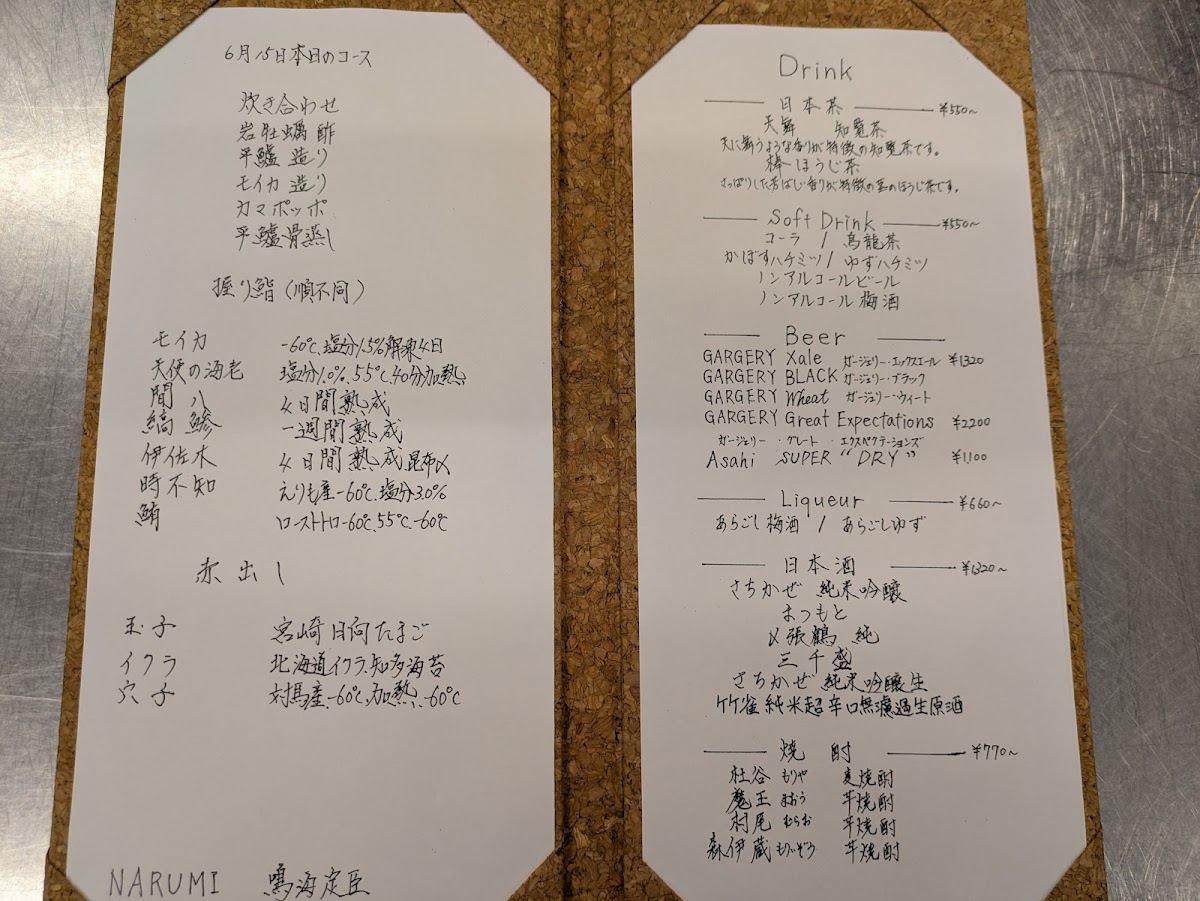 6月15日本日のコース
炊き合わせ
岩牡蠣 酢
平鱸 造り
モイカ 造り
カマポッポ
平鱸骨蒸し
握り鮨(順不同)
モイカ -60℃、塩分1.5%解凍4日
天使の海老 塩分1.0%、55℃、40分加熱
間八 4日間熟成
縞鯵 一週間熟成
伊佐木 4日間熟成 昆布〆
時不知 えりも産-60℃、塩分3.0%
鮪 ローストトロ-60℃、55℃、-60℃
赤出し
玉子 宮崎日向たまご
イクラ 北海道イクラ、知多海苔
穴子 対馬産、-60℃、加熱、-60℃
NARUMI 鳴海定臣
Drink
日本茶 ¥550~
天舞 知覧茶
天に舞うような香りが特徴の知覧茶です。
棒ほうじ茶
さっぱりした芳ばしい香りが特徴の茎のほうじ茶です。
Soft Drink ¥550~
コーラ / 烏龍茶
かぼすハチミツ / ゆずハチミツ
ノンアルコールビール
ノンアルコール梅酒
Beer
GARGERY Xale ガージェリー・エックスエール ¥1320
GARGERY BLACK ガージェリー・ブラック
GARGERY Wheat ガージェリー・ウィート
GARGERY Great Expectations ¥2200
ガージェリー・グレート・エクスペクテーションズ
Asahi SUPER "DRY" ¥1,100
Liqueur ¥660~
あらごし梅酒 / あらごしゆず
日本酒 ¥1320~
さちかぜ 純米吟醸
まつもと
〆張鶴 純
三千盛
さちかぜ 純米吟醸生
竹雀 純米超辛口無濾過生原酒
焼酎 ¥770~
社谷 もりや 麦焼酎
魔王 まおう 芋焼酎
村尾 むらお 芋焼酎
森伊蔵 もりいぞう 芋焼酎